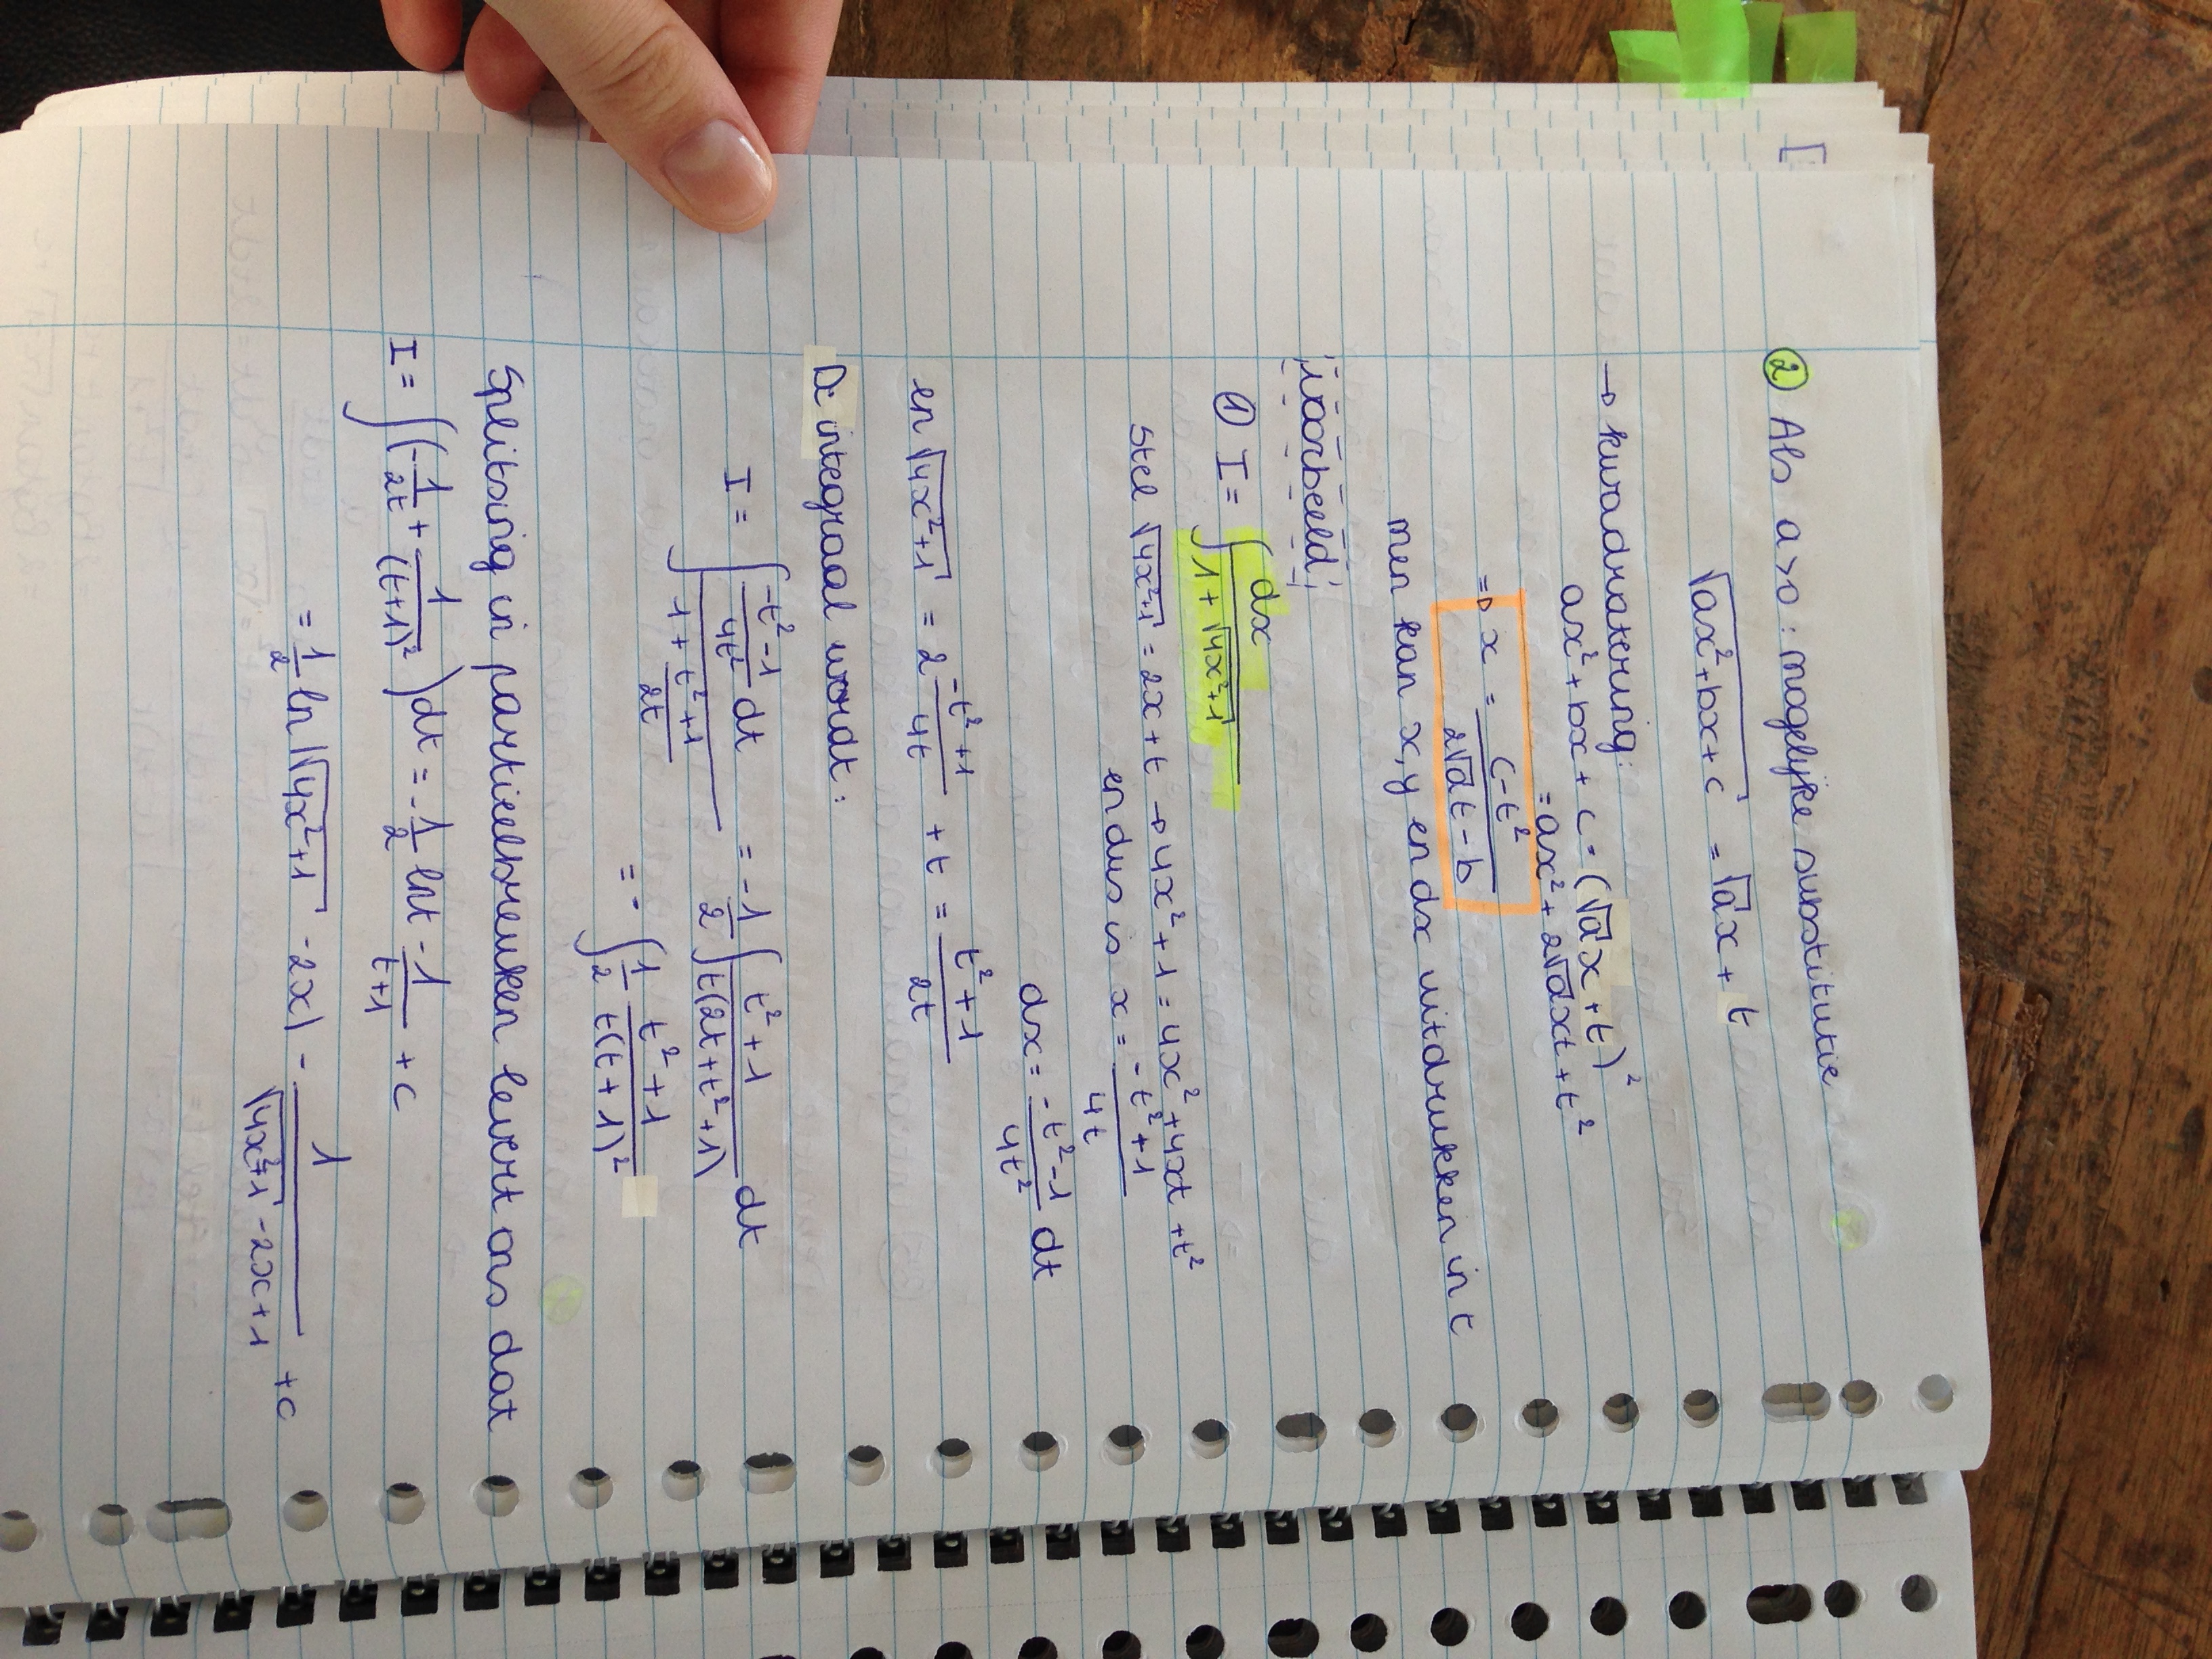 ② Als a>0 : mogelijke substitutie
√(ax²+bx+c) = √a x + t
→ kwadratering:
ax²+bx+c = (√a x+t)²
= ax² + 2√a xt + t²
⇒ x = (c-t²)/(2√a t - b)
men kan x, y en dx uitdrukken in t
voorbeeld
① I = ∫ dx/(1+√(4x²+1))
Stel √(4x²+1) = 2x+t → 4x²+1 = 4x²+4xt+t²
en dus is x = (-t²+1)/(4t)
dx = (-t²-1)/(4t²) dt
en √(4x²+1) = 2 (-t²+1)/(4t) + t = (t²+1)/(2t)
De integraal wordt:
I = ∫ ((-t²-1)/(4t²) dt)/(1+(t²+1)/(2t)) = -1/2 ∫ (t²+1)/(t(2t+t²+1)) dt
= - ∫ 1/2 (t²+1)/(t(t+1)²)
Splitsing in partieelbreuken levert ons dat
I = ∫(-1/(2t) + 1/(t+1)²)dt = -1/2 ln t - 1/(t+1) + c
= 1/2 ln |√(4x²+1) - 2x| - 1/(√(4x²+1) - 2x+1) + c